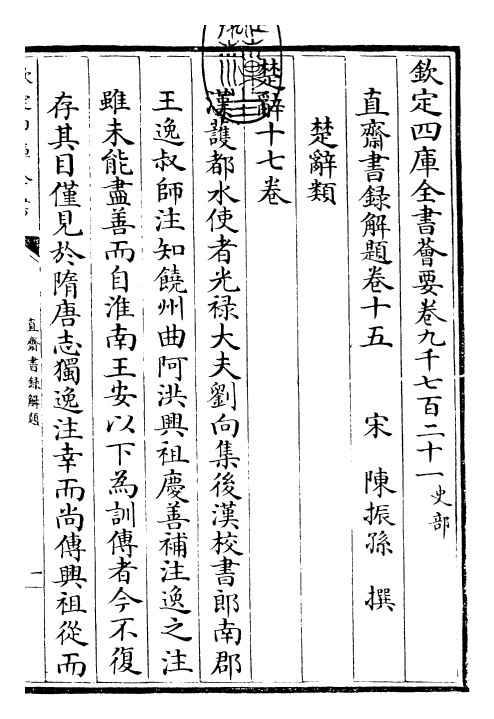 欽定四庫全書薈要卷九千七百二十一史部
直齋書録解題卷十五 宋 陳振孫 撰
楚辭類
楚辭十七卷
漢護都水使者光禄大夫劉向集後漢校書郎南郡
王逸叔師注知饒州曲阿洪興祖慶善補注逸之注
雖未能盡善而自淮南王安以下為訓傳者今不復
存其目僅見於隋唐志獨逸注幸而尚傳興祖從而
直齋書録解題
一